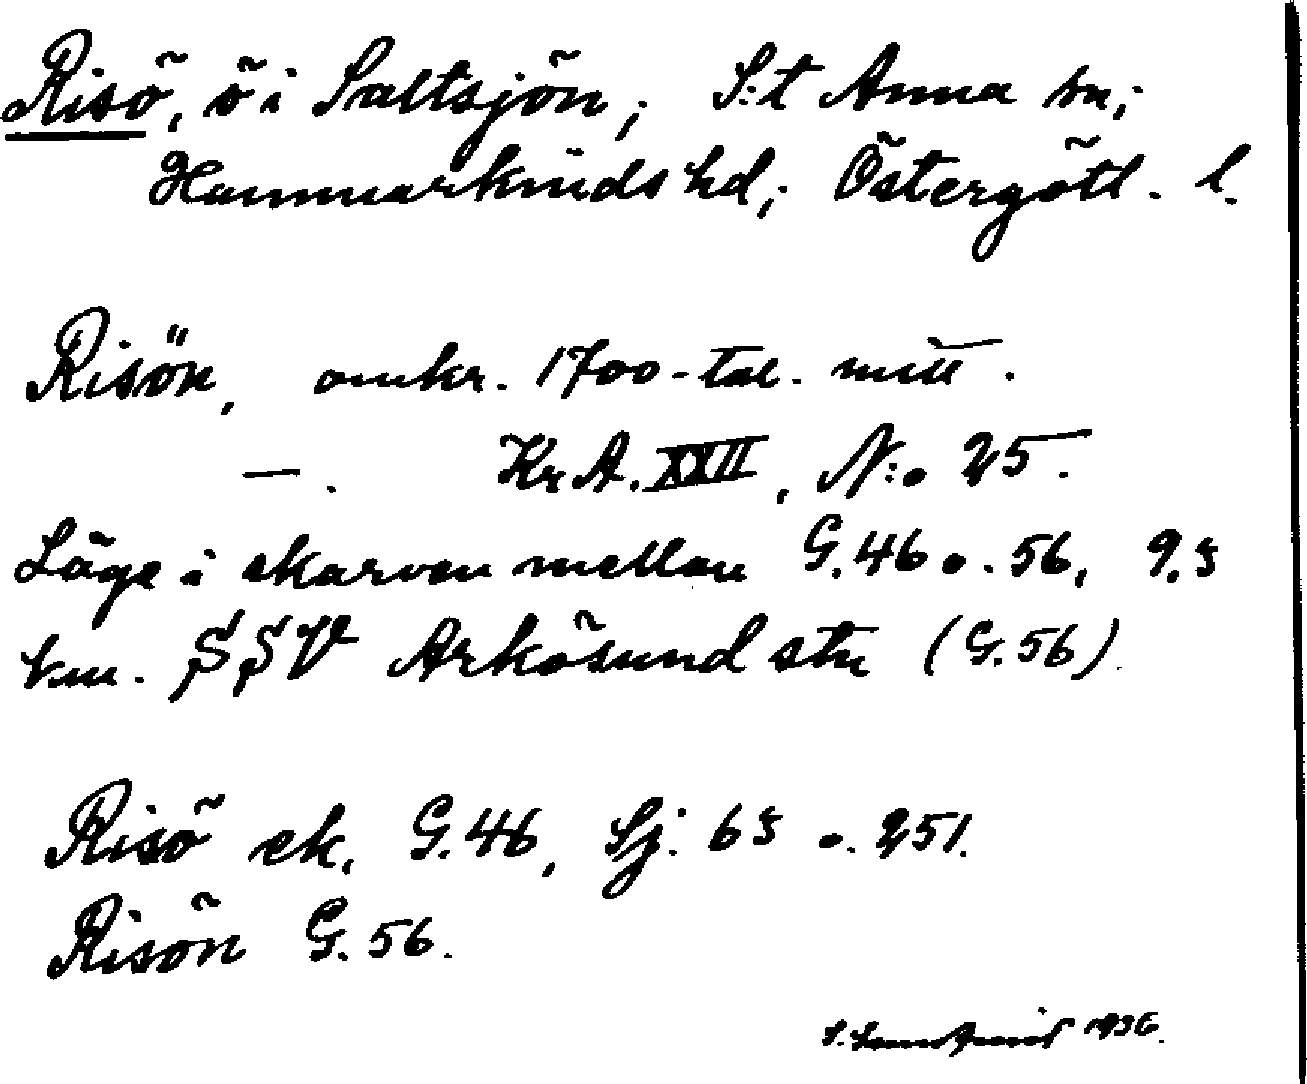 Risö, ö i Saltsjön; S:t Anna sn;
Hammarkinds hd; Östergötl. l.
Risön, omkr. 1700-tal. mitt.
— . Kr A. XXII, N:o 25.
Läge i skarven mellan G.46 o. 56, 9.5
km. SSV Arkösund stn (G.56).
Risö ek. G.46, Sj. 65 o. 251.
Risön G. 56.
1936.